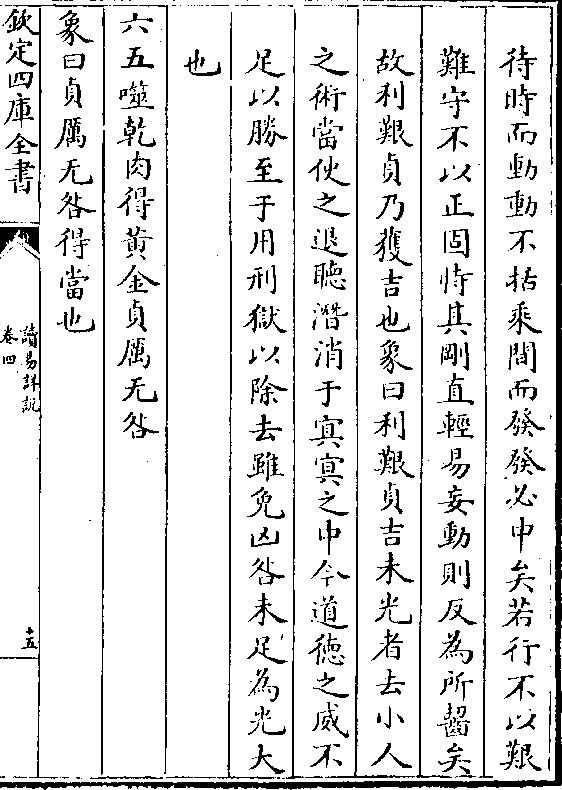 待時而動動不括乘間而發發必中矣若行不以艱
難守不以正固恃其剛直輕易妄動則反為所齧矣
故利艱貞乃獲吉也象曰利艱貞吉未光者去小人
之術當使之退聽潛消于冥冥之中今道徳之威不
足以勝至于用刑獄以除去雖免凶咎未足為光大
也
六五噬乾肉得黃金貞厲无咎
象曰貞厲无咎得當也
欽定四庫全書
讀易詳說
卷四
十五